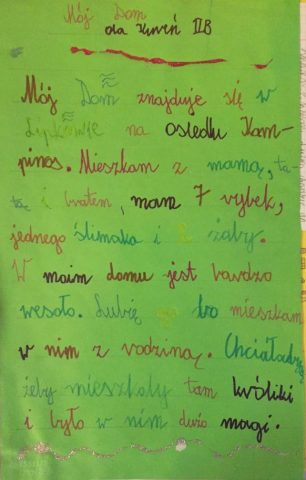 Mój Dom
dla Kureń II B
Mój Dom znajduje się w
Lipkowie na osiedlu Kam-
pinos. Mieszkam z mamą, ta-
tą i bratem, mam 7 rybek,
jednego ślimaka i 2 żaby.
W moim domu jest bardzo
wesoło. Lubię go bo mieszkam
w nim z rodziną. Chciałabym
żeby mieszkały tam króliki
i było w nim dużo magi.